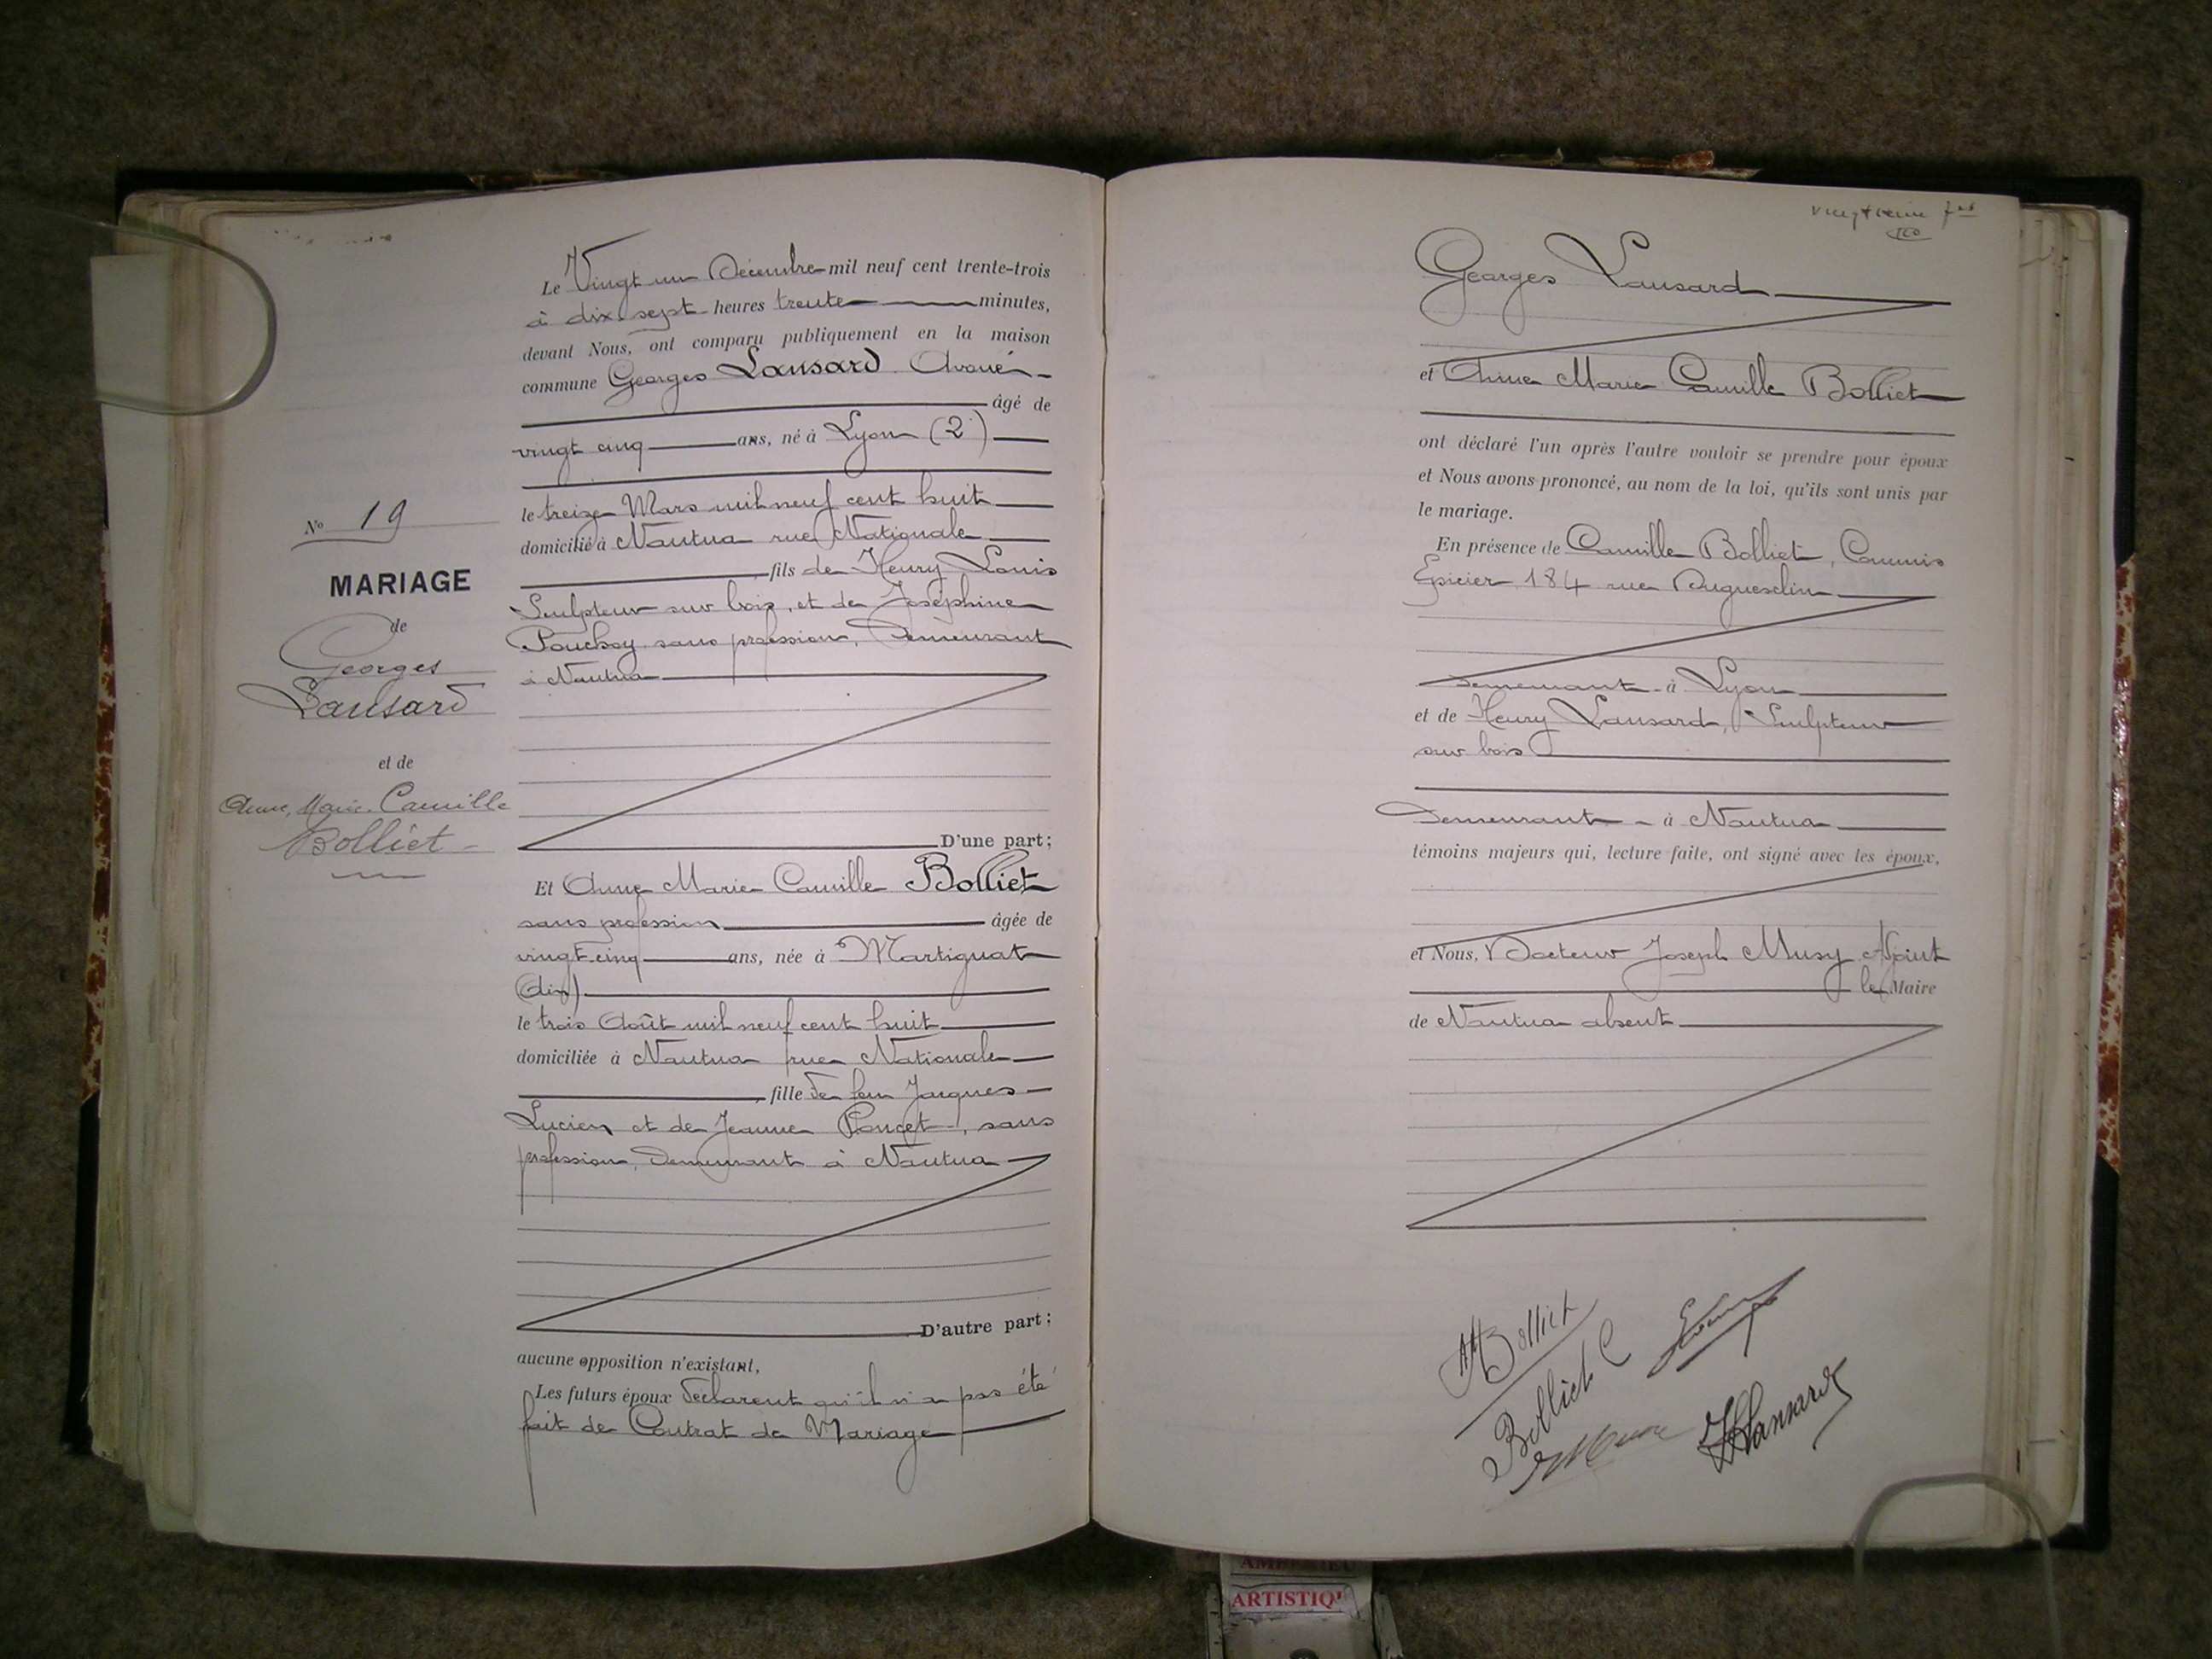 Le Vingt un Décembre mil neuf cent trente-trois
à dix-sept heures trente minutes,
devant Nous, ont comparu publiquement en la maison
commune Georges Lansard Avoué
âgé de
vingt cinq ans, né à Lyon (2)
le treize Mars mil neuf cent huit
domicilié à Nantua rue Nationale
fils de Henry Louis
Sculpteur sur bois, et de Joséphine
Pouchoy sans profession, demeurant
à Nantua
D'une part;
Et Anne Marie Camille Bolliet
sans profession âgée de
vingt-cinq ans, née à Martignat
(Ain)
le trois Août mil neuf cent huit
domiciliée à Nantua rue Nationale
fille de feu Jacques
Lucien et de Jeanne Poncet, sans
profession, demeurant à Nantua
D'autre part;
aucune opposition n'existant,
Les futurs époux déclarent qu'il n'a pas été
fait de Contrat de Mariage
No 19
MARIAGE
de
Georges
Lansard
et de
Anne, Marie-Camille
Bolliet
Georges Lansard
et Anne Marie Camille Bolliet
ont déclaré l'un après l'autre vouloir se prendre pour époux
et Nous avons prononcé, au nom de la loi, qu'ils sont unis par
le mariage.
En présence de Camille Bolliet, Commis
Epicier 184 rue Duguesclin
demeurant à Lyon
et de Henry Lansard, Sculpteur
sur bois
demeurant à Nantua
témoins majeurs qui, lecture faite, ont signé avec les époux,
et Nous, Docteur Joseph Musy Adjoint
le Maire
de Nantua absent
AM Bolliet
Bolliet C
HLansard
ARTISTIQ